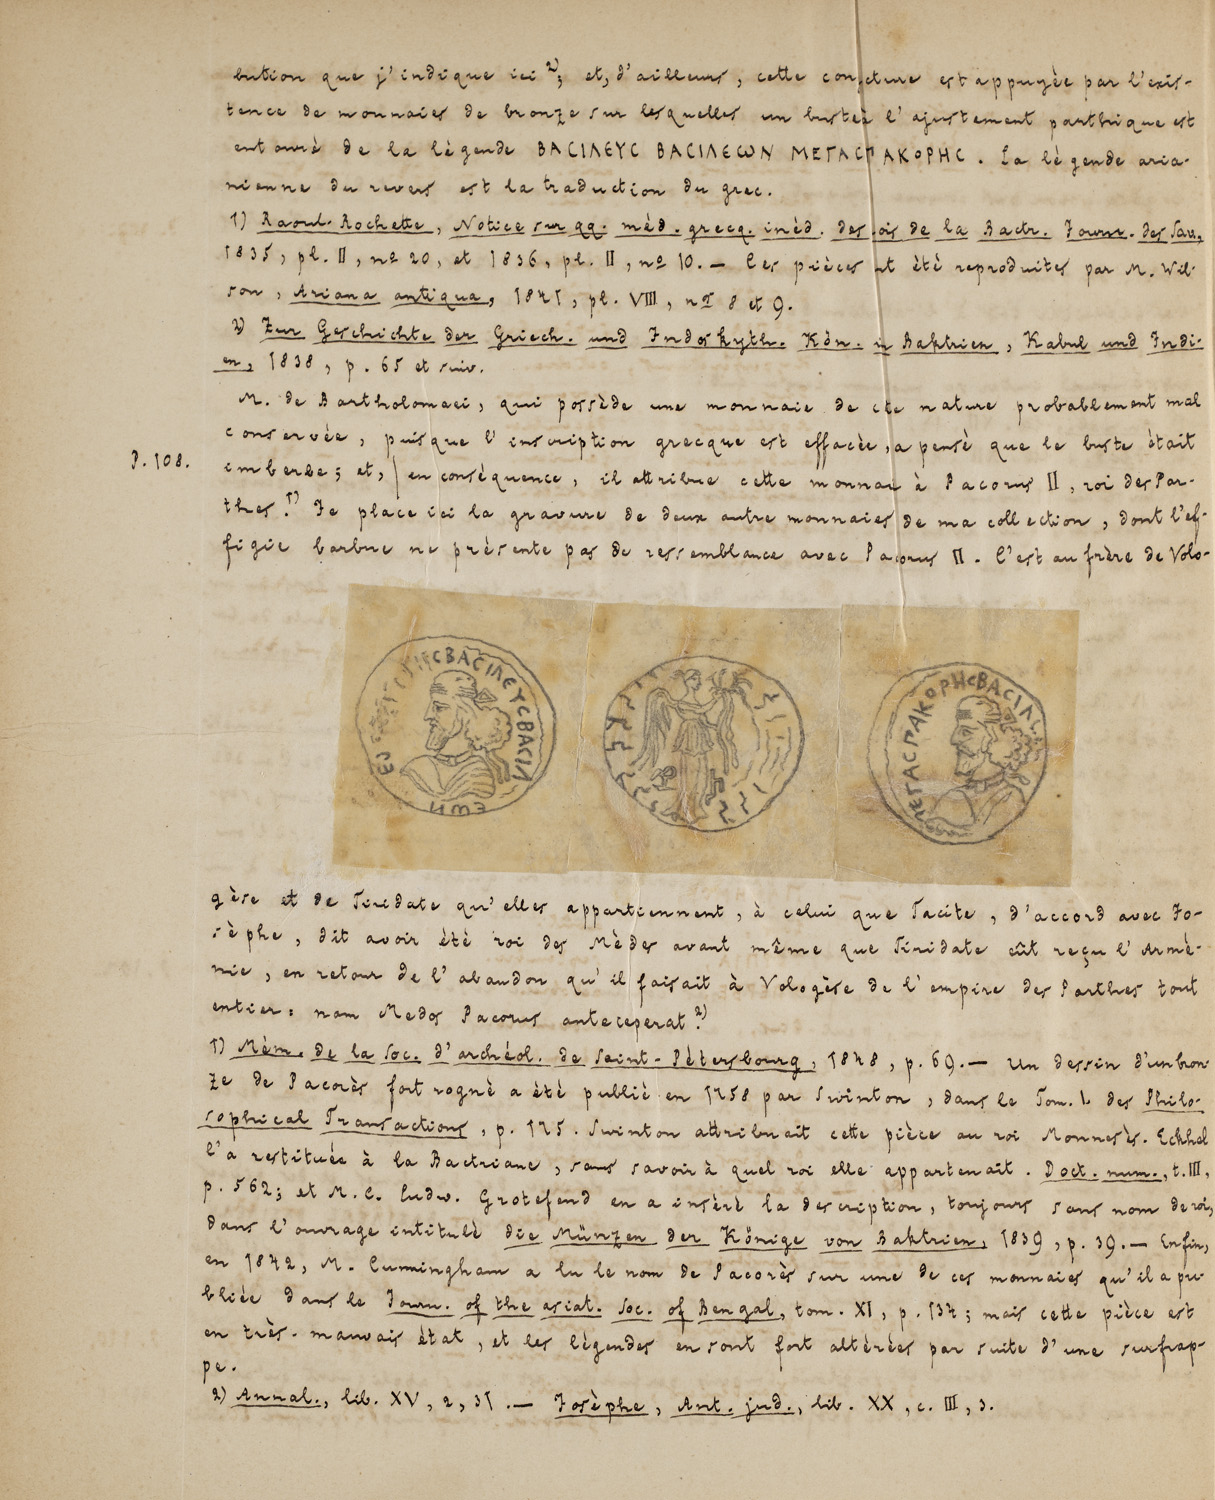 bution que j'indique ici 2); et, d'ailleurs, cette conjcture est appuyée par l'exis-
tence de monnaies de bronze sur lesquelles un buste à l'ajustement parthique est
entouré de la légende ΒΑCΙΛΕΥC ΒΑCΙΛΕΩΝ ΜΕΓΑC ΠΑΚΟΡΗC. La légende aria-
nienne du revers est la traduction du grec.
1) Raoul-Rochette, Notice sur qq. méd. grecq. inéd. des rois de la Bactr. Journ. des Sav.
1835, pl. II, no 20, et 1836, pl. II, no 10. — Ces pièces nt été reproduites par M. Wil-
son, Ariana antiqua, 1841, pl. VIII, no 8 et 9.
2) Zur Geschichte der Griech. und Indoskyth. Kön. in Baktrien, Kabul und Indi-
en, 1838, p. 65 et suiv.
M. de Bartholomaei, qui possède une monnaie de cte nature probablement mal
conservée, puisque l'inscription grecque est effacée, a pensé que le buste était
P. 108.
imberbe; et, | en conséquence, il attribue cette monnaie à Pacorus II, roi des Par-
thes. 1) Je place ici la gravure de deux autre monnaies de ma collection, dont l'ef-
figie barbue ne présente pas de ressemblance avec Pacorus II. C'est au frère de Volo-
ΗCΒΑCΙΛΕΥCΒΑCΙΛ
ΕΩΝ
ΜΕΓΑCΠΑΚΟΡΗCΒΑCΙΛΕ
gèse et de Tiridate qu'elles appartiennent, à celui que Tacite, d'accord avec Jo-
sèphe, dit avoir été roi des Mèdes avant même que Tiridate eût reçu l'Armé-
nie, en retour de l'abandon qu'il faisait à Vologèse de l'empire des Parthes tout
entier: nam Medos Pacorus anteceperat. 2)
1) Mém. de la Soc. d'archéol. de Saint-Pétersbourg, 1848, p. 69. — Un dessin d'un bron-
ze de Pacorès fort rogné a été publié en 1758 par Swinton, dans le Tom. L des Philo-
sophical Transactions, p. 175. Swinton attribuait cette pièce au roi Monnesès. Eckhel
l'a restituée à la Bactriane, sans savoir à quel roi elle appartenait. Doct. num., t. III,
p. 562; et M. C. Ludw. Grotefend en a inséré la description, toujours sans nom de roi,
dans l'ouvrage intitulé die Münzen der Könige von Baktrien, 1839, p. 39. — Enfin,
en 1842, M. Cunningham a lu le nom de Pacorès sur une de ces monnaies qu'il a pu-
bliée dans le Journ. of the asiat. Soc. of Bengal, tom. XI, p. 134; mais cette pièce est
en très-mauvais état, et les légendes en sont fort altérées par suite d'une surfrap-
pe.
2) Annal., lib. XV, 2, 31. — Josèphe, Ant. jud., lib. XX, c. III, 3.